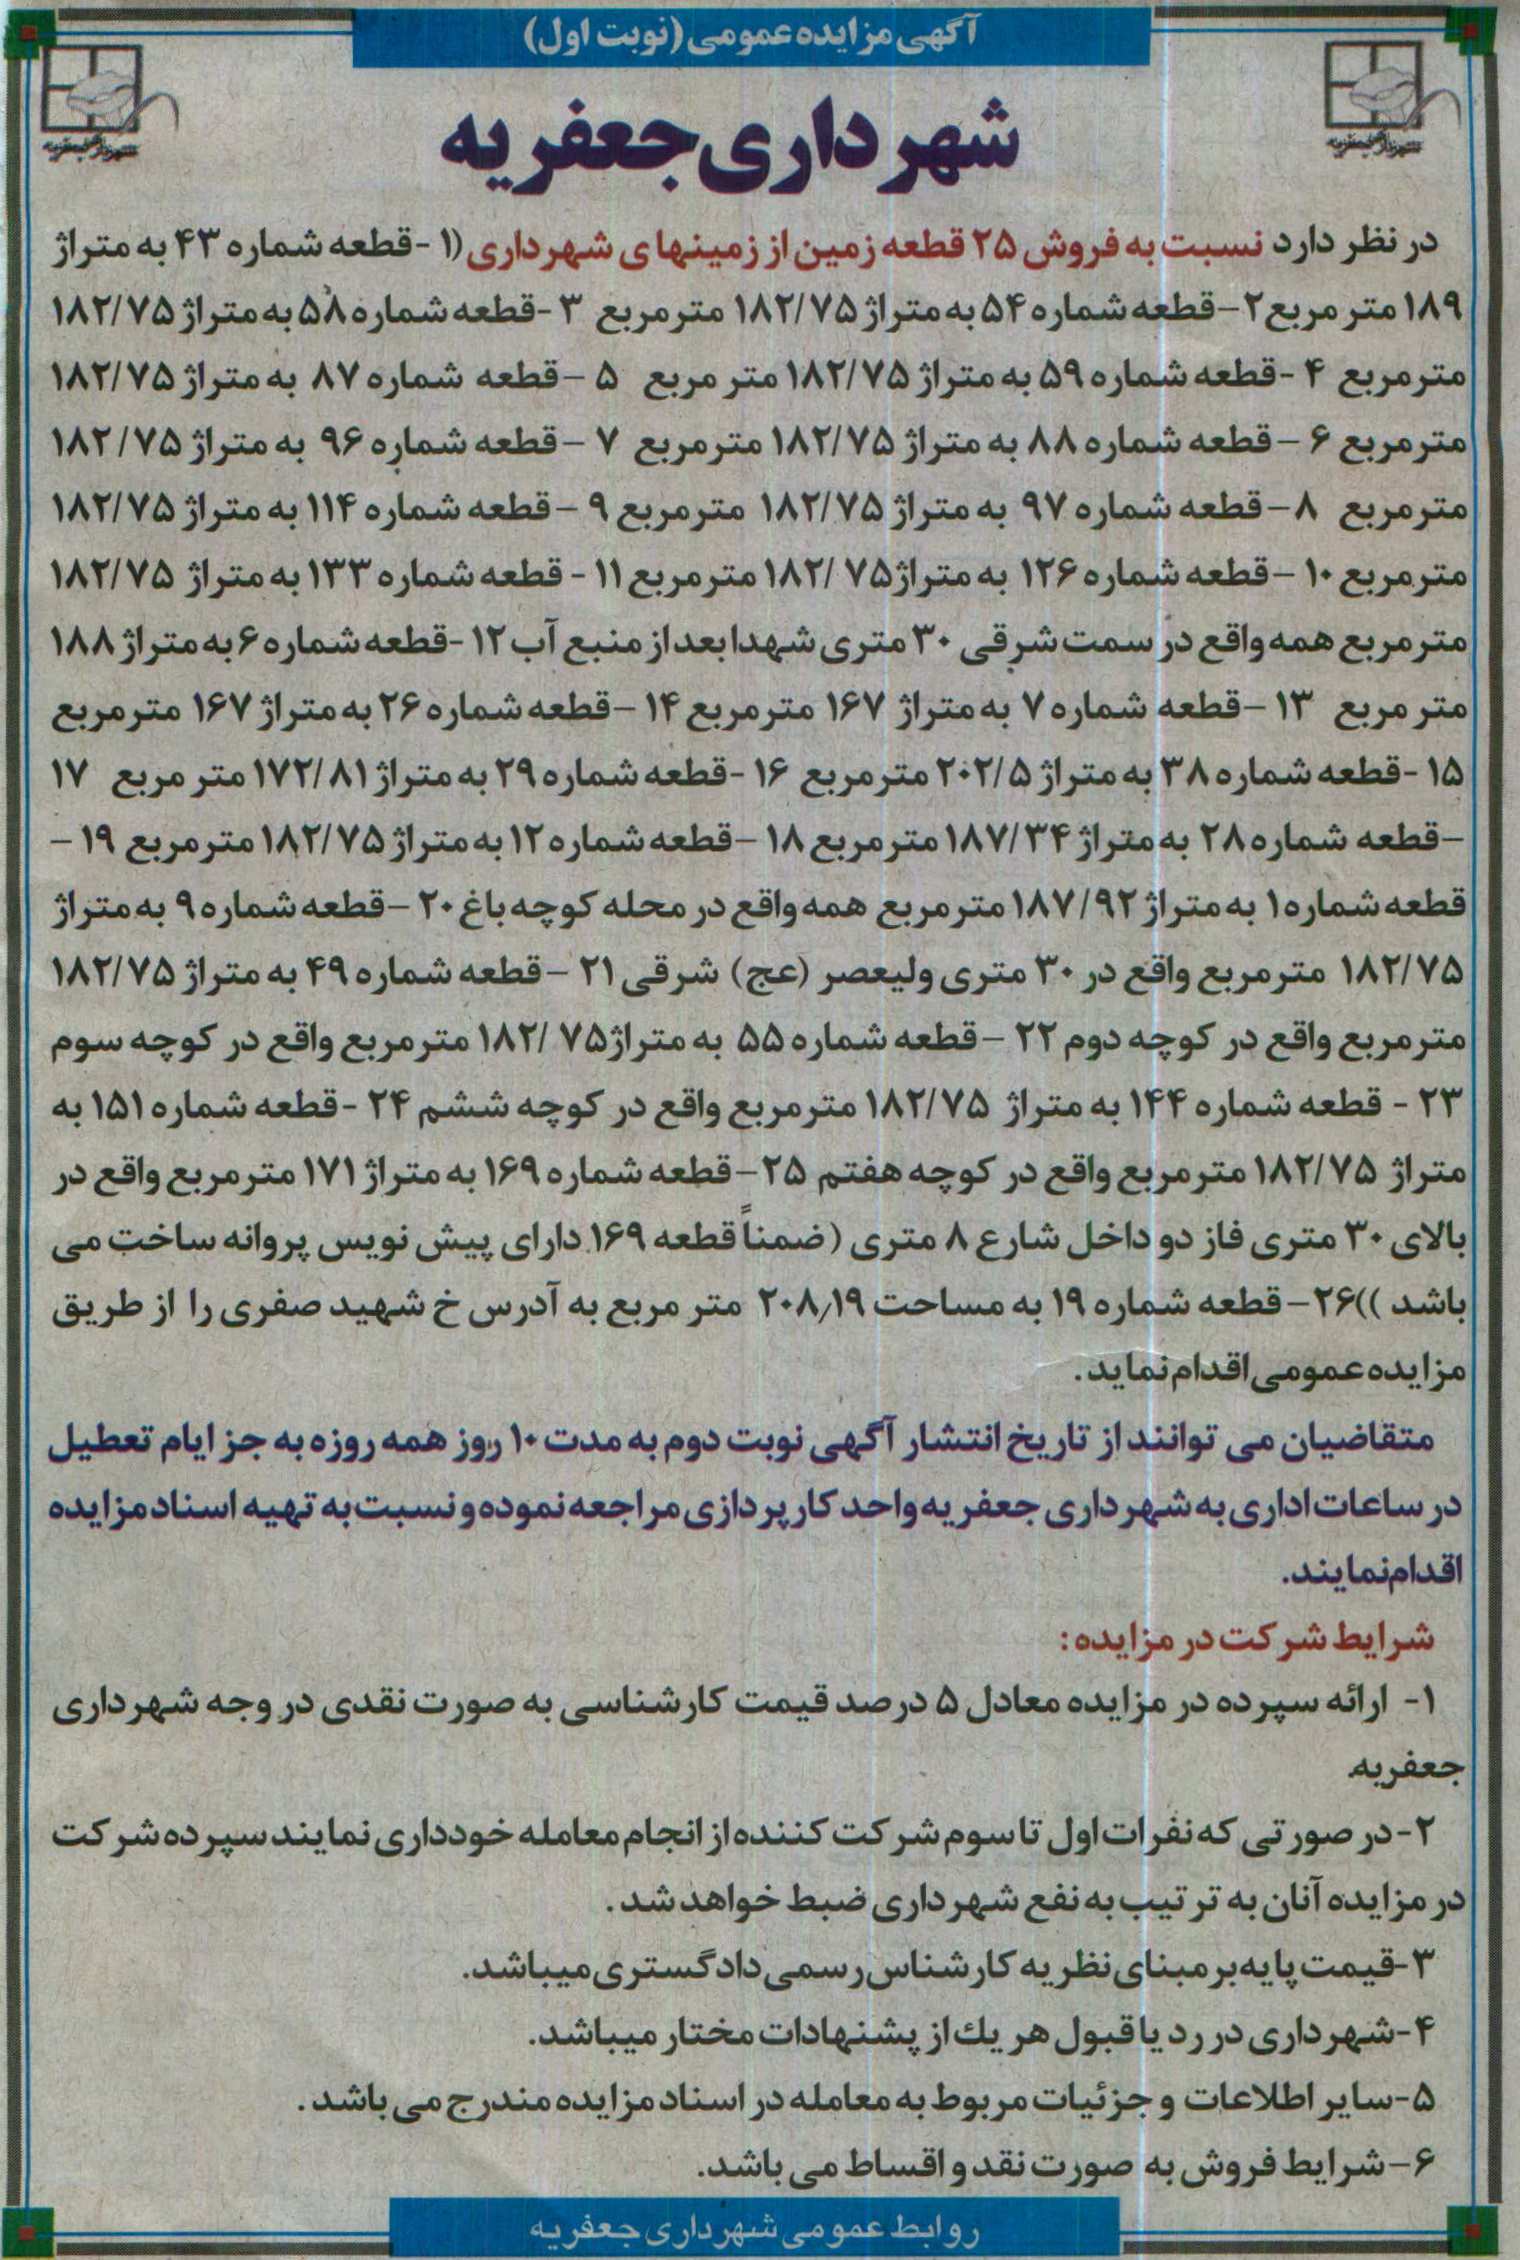 آگهی مزایده عمومی (نوبت اول)
شهرداری جعفریه
شهرداری جعفریه
شهرداری جعفریه
در نظر دارد نسبت به فروش ۲۵ قطعه زمین از زمینهای شهرداری (۱ - قطعه شماره ۴۳ به متراژ
۱۸۹ متر مربع ۲ – قطعه شماره ۵۴ به متراژ ۱۸۲/۷۵ مترمربع ۳ - قطعه شماره ۵۸ به متراژ ۱۸۲/۷۵
مترمربع ۴ - قطعه شماره ۵۹ به متراژ ۱۸۲/۷۵ متر مربع ۵ – قطعه شماره ۸۷ به متراژ ۱۸۲/۷۵
مترمربع ۶ – قطعه شماره ۸۸ به متراژ ۱۸۲/۷۵ مترمربع ۷ – قطعه شماره ۹۶ به متراژ ۱۸۲/۷۵
مترمربع ۸ – قطعه شماره ۹۷ به متراژ ۱۸۲/۷۵ مترمربع ۹ – قطعه شماره ۱۱۴ به متراژ ۱۸۲/۷۵
مترمربع ۱۰ – قطعه شماره ۱۲۶ به متراژ ۱۸۲/۷۵ مترمربع ۱۱ - قطعه شماره ۱۳۳ به متراژ ۱۸۲/۷۵
مترمربع همه واقع در سمت شرقی ۳۰ متری شهدا بعد از منبع آب ۱۲ - قطعه شماره ۶ به متراژ ۱۸۸
متر مربع ۱۳ – قطعه شماره ۷ به متراژ ۱۶۷ مترمربع ۱۴ – قطعه شماره ۲۶ به متراژ ۱۶۷ مترمربع
۱۵ - قطعه شماره ۳۸ به متراژ ۲۰۲/۵ مترمربع ۱۶ - قطعه شماره ۲۹ به متراژ ۱۷۲/۸۱ متر مربع ۱۷
– قطعه شماره ۲۸ به متراژ ۱۸۷/۳۴ مترمربع ۱۸ – قطعه شماره ۱۲ به متراژ ۱۸۲/۷۵ مترمربع ۱۹ –
قطعه شماره ۱ به متراژ ۱۸۷/۹۲ مترمربع همه واقع در محله کوچه باغ ۲۰ – قطعه شماره ۹ به متراژ
۱۸۲/۷۵ مترمربع واقع در ۳۰ متری ولیعصر (عج) شرقی ۲۱ – قطعه شماره ۴۹ به متراژ ۱۸۲/۷۵
مترمربع واقع در کوچه دوم ۲۲ – قطعه شماره ۵۵ به متراژ ۱۸۲/۷۵ مترمربع واقع در کوچه سوم
۲۳ - قطعه شماره ۱۴۴ به متراژ ۱۸۲/۷۵ مترمربع واقع در کوچه ششم ۲۴ - قطعه شماره ۱۵۱ به
متراژ ۱۸۲/۷۵ مترمربع واقع در کوچه هفتم ۲۵ – قطعه شماره ۱۶۹ به متراژ ۱۷۱ مترمربع واقع در
بالای ۳۰ متری فاز دو داخل شارع ۸ متری (ضمناً قطعه ۱۶۹ دارای پیش نویس پروانه ساخت می
باشد ))۲۶ – قطعه شماره ۱۹ به مساحت ۲۰۸٫۱۹ متر مربع به آدرس خ شهید صفری را از طریق
مزایده عمومی اقدام نماید.
متقاضیان می توانند از تاریخ انتشار آگهی نوبت دوم به مدت ۱۰ روز همه روزه به جز ایام تعطیل
در ساعات اداری به شهرداری جعفریه واحد کارپردازی مراجعه نموده و نسبت به تهیه اسناد مزایده
اقدام نمایند.
شرایط شرکت در مزایده:
۱- ارائه سپرده در مزایده معادل ۵ درصد قیمت کارشناسی به صورت نقدی در وجه شهرداری
جعفریه
۲- در صورتی که نفرات اول تا سوم شرکت کننده از انجام معامله خودداری نمایند سپرده شرکت
در مزایده آنان به ترتیب به نفع شهرداری ضبط خواهد شد.
۳-قیمت پایه بر مبنای نظریه کارشناس رسمی دادگستری میباشد.
۴-شهرداری در رد یا قبول هر یك از پشنهادات مختار میباشد.
۵-سایر اطلاعات و جزئیات مربوط به معامله در اسناد مزایده مندرج می باشد.
۶- شرایط فروش به صورت نقد و اقساط می باشد.
روابط عمومی شهرداری جعفریه